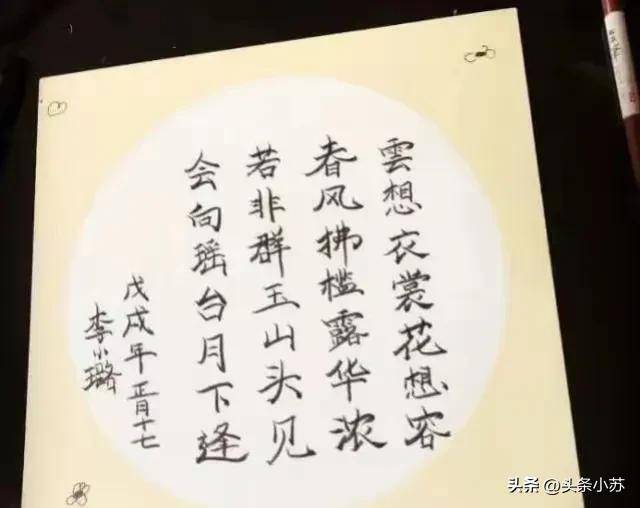 雲想衣裳花想容
春风拂槛露华浓
若非群玉山头见
会向瑶台月下逢
戊戌年正月十七
李小璐
头条 @头条小苏